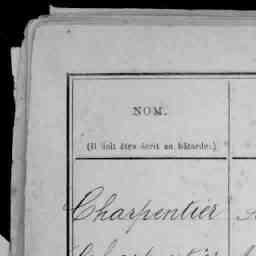 NOM.
(Il doit être écrit en bâtarde.)
Charpentier
Charpentier